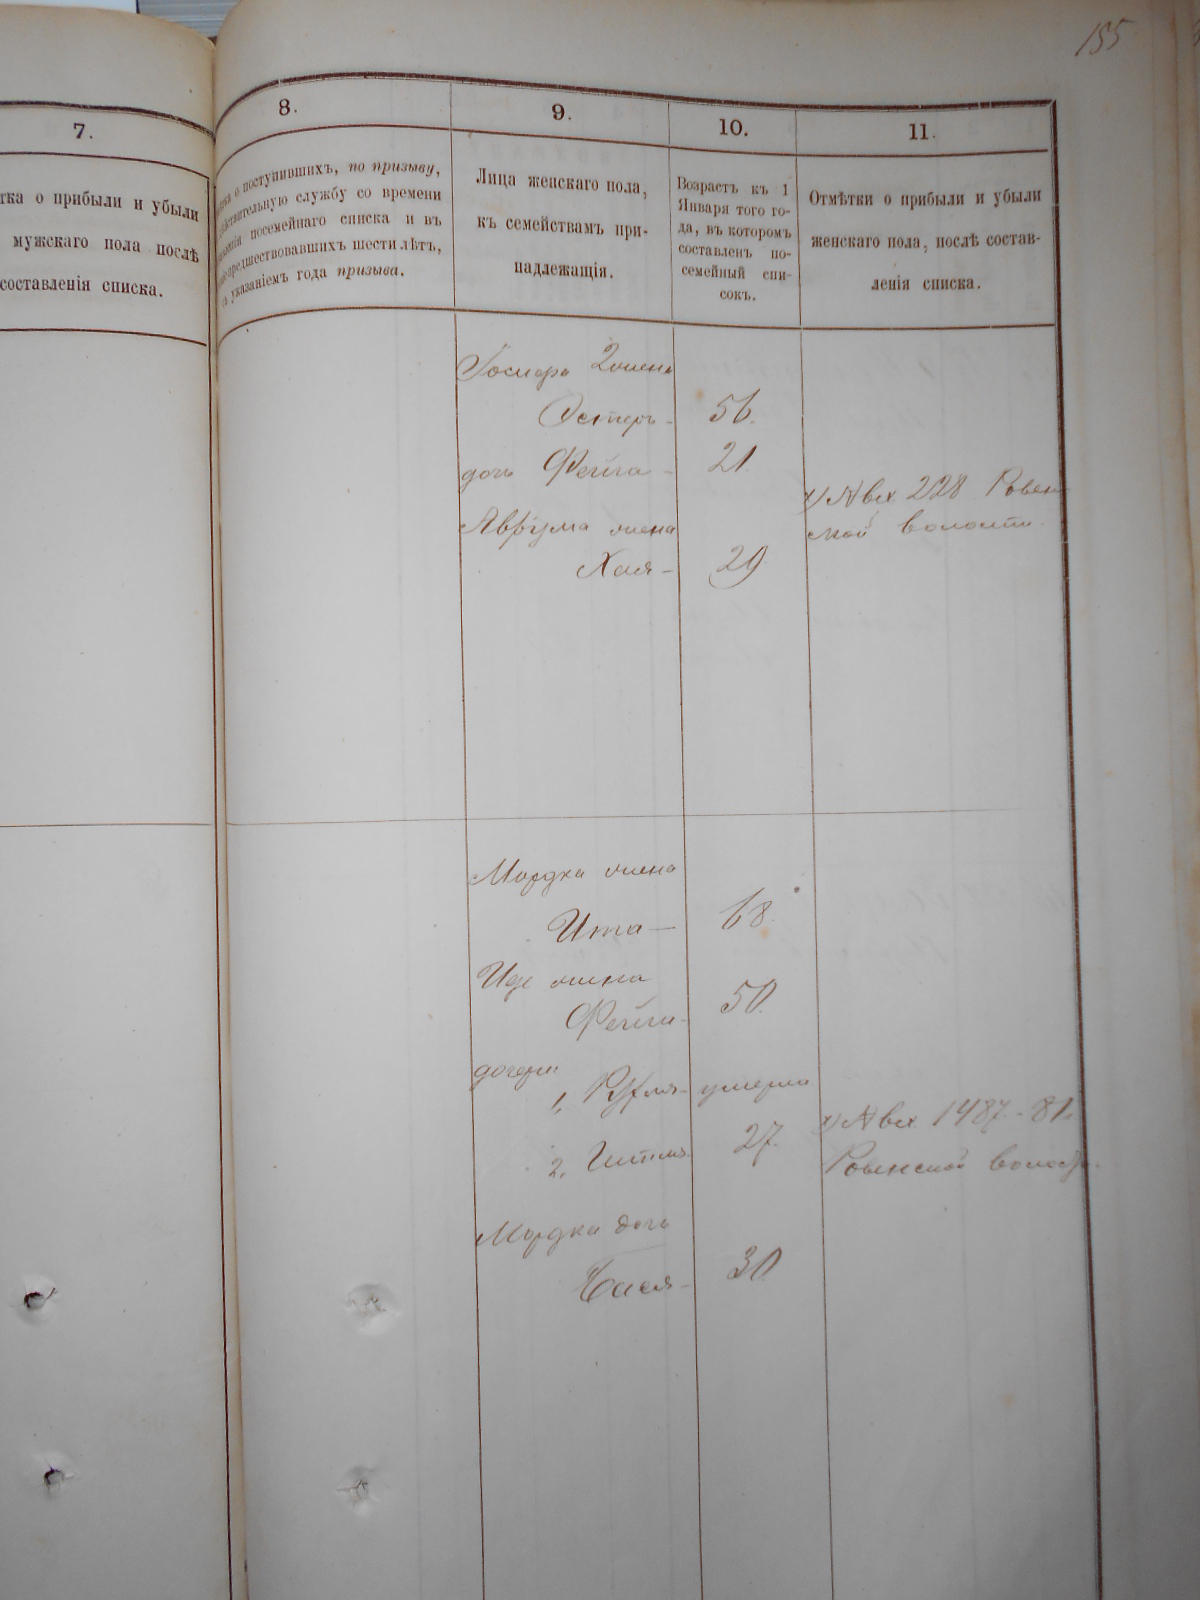 155
7.
тка о прибыли и убыли
мужскаго пола послѣ
составленія списка.
8.
о поступившихъ, по призыву,
службу со времени
посемейнаго списка и въ
предшествовавшихъ шести лѣтъ,
съ указаніемъ года призыва.
9.
Лица женскаго пола,
къ семействамъ при-
надлежащія.
10.
Возрастъ къ 1
Января того го-
да, въ которомъ
составленъ по-
семейный спи-
сокъ.
11.
Отмѣтки о прибыли и убыли
женскаго пола, послѣ состав-
ленія списка.
2 жена
Эстеръ - 56.
дочь Фейга - 21.
Аврума жена
Хая - 29
228 Ровен-
ской волости.
Мордка жена
Ита — 68.
Иде жена
Фейга - 50.
дочери:
1, умерла
2, Гитля 27.
1487 - 81.
Ровенской волости.
Мордка дочь
Бася - 30